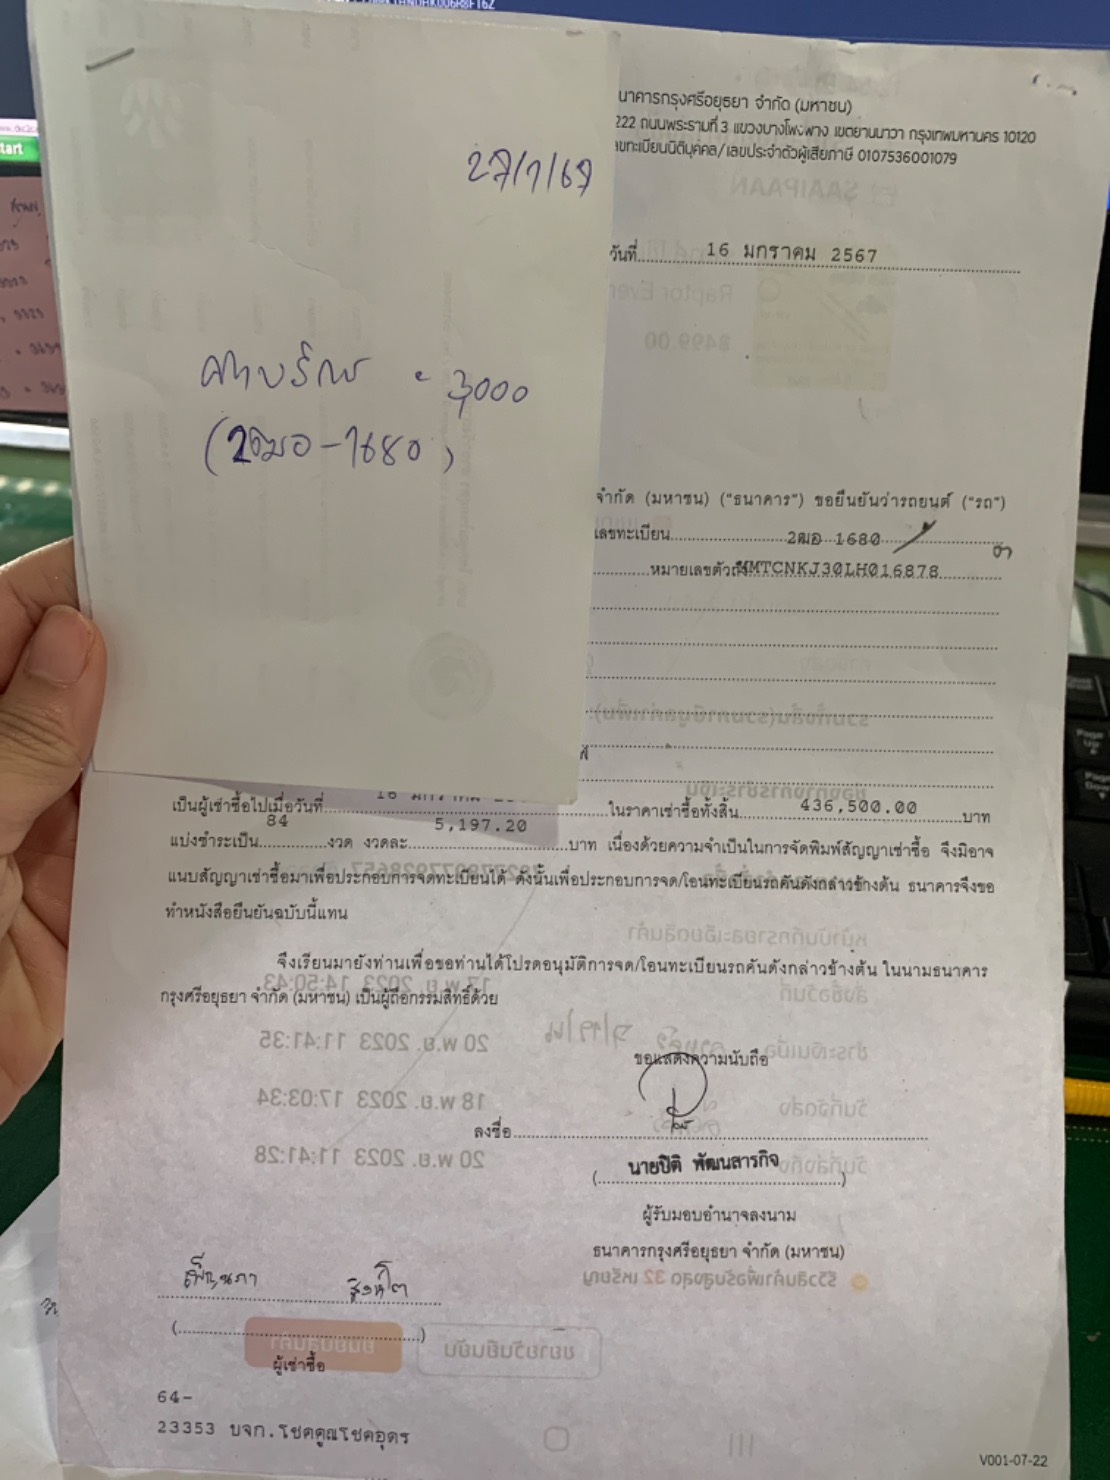 27/1/67
ค่าบริการ = 3,000
(2ฒอ-1680)
นาคารกรุงศรีอยุธยา จำกัด (มหาชน)
222 ถนนพระรามที่ 3 แขวงบางโพงพาง เขตยานนาวา กรุงเทพมหานคร 10120
ลขทะเบียนนิติบุคคล/เลขประจำตัวผู้เสียภาษี 0107536001079
วันที่ 16 มกราคม 2567
จำกัด (มหาชน) ("ธนาคาร") ขอยืนยันว่ารถยนต์ ("รถ")
เลขทะเบียน 2ฒอ 1680
หมายเลขตัวถัง MMTCNKJ30LH016878
เป็นผู้เช่าซื้อไปเมื่อวันที่ 16 มกราคม ในราคาเช่าซื้อทั้งสิ้น 436,500.00 บาท
แบ่งชำระเป็น 84 งวด งวดละ 5,197.20 บาท เนื่องด้วยความจำเป็นในการจัดพิมพ์สัญญาเช่าซื้อ จึงมิอาจ
แนบสัญญาเช่าซื้อมาเพื่อประกอบการจดทะเบียนได้ ดังนั้นเพื่อประกอบการจด/โอนทะเบียนรถคันดังกล่าวข้างต้น ธนาคารจึงขอ
ทำหนังสือยืนยันฉบับนี้แทน
จึงเรียนมายังท่านเพื่อขอท่านได้โปรดอนุมัติการจด/โอนทะเบียนรถคันดังกล่าวข้างต้น ในนามธนาคาร
กรุงศรีอยุธยา จำกัด (มหาชน) เป็นผู้ถือกรรมสิทธิ์ด้วย
ขอแสดงความนับถือ
ลงชื่อ
นายปิติ พัฒนสารกิจ
ผู้รับมอบอำนาจลงนาม
ธนาคารกรุงศรีอยุธยา จำกัด (มหาชน)
เพ็ญนภา สิงห์โต
ผู้เช่าซื้อ
64-
23353 บจก.โชคคูณโชคอุดร
V001-07-22